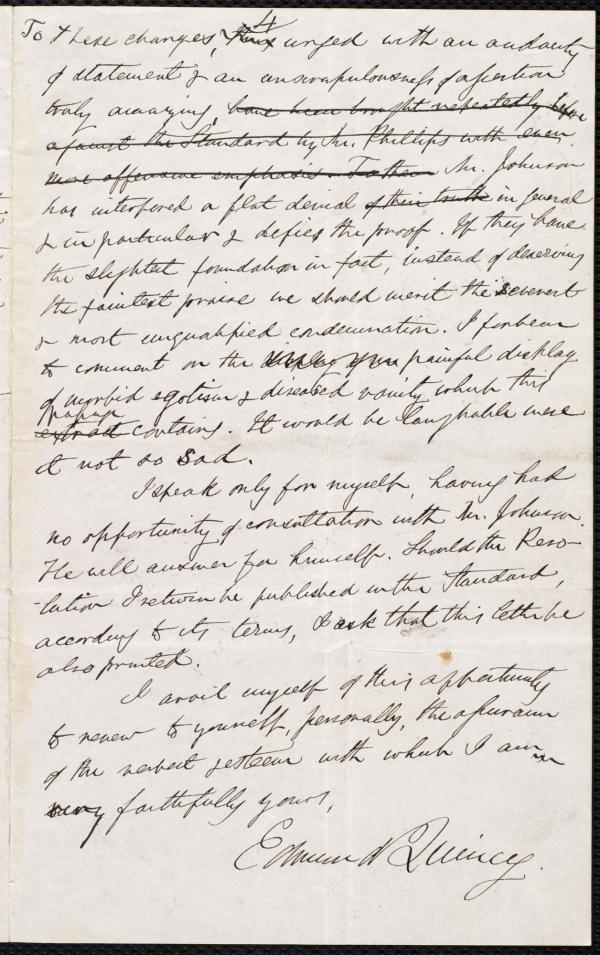 4
To these changes, thus urged with an audacity
of statement & an unscrupulousness of assertion
truly amazing, have been brought repeatedly before
against the Standard by Mr. Phillips with even
more offensive emphasis. To them Mr. Johnson
has interposed a flat denial of their truth in general
& in particular & defies the proof. If they have
the slightest foundation in fact, instead of deserving
the faintest praise we should merit the severest
& most unqualified condemnation. I forbear
to comment on the display painful display
of morbid egotism & diseased vanity which this
paper
extract contains. It would be laughable were
it not so sad.
I speak only for myself, having had
no opportunity of consultation with Mr. Johnson.
He will answer for himself. Should the Reso-
-lution I return be published in the Standard,
according to its terms, I ask that this letter be
also printed.
I avail myself of this opportunity
to renew to yourself, personally, the assurance
of the respect & esteem with which I am
very faithfully yours,
Edmund Quincy.